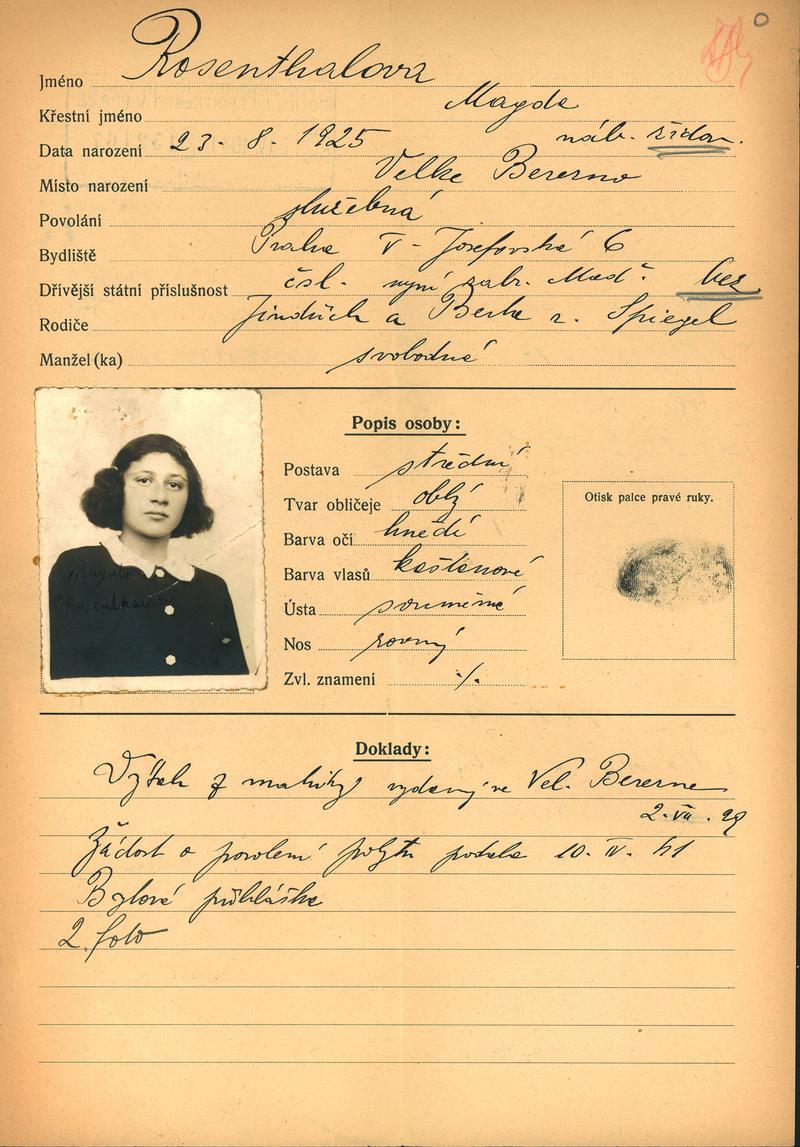 Jméno Rosenthalova
Křestní jméno Magda
Data narození 23. 8. 1925 náb. židov.
Místo narození Velke Berezno
Povolání služebná
Bydliště Praha V - Josefovská 6
Dřívější státní příslušnost čsl. nyní zabr. Maď. bez
Rodiče Jindřich a Berta r. Spiegel
Manžel (ka) svobodná
Popis osoby:
Postava střední
Tvar obličeje oblý
Barva očí hnědé
Barva vlasů kaštanové
Ústa souměrné
Nos rovný
Zvl. znamení ./.
Otisk palce pravé ruky.
Magda
Rosenthalova
Doklady:
Výtah z matriky vydaný ve Vel. Berezne
2. VII. 29
Žádost o povolení pobytu podala 10. IV. 41
Bytová přihláška
2 foto